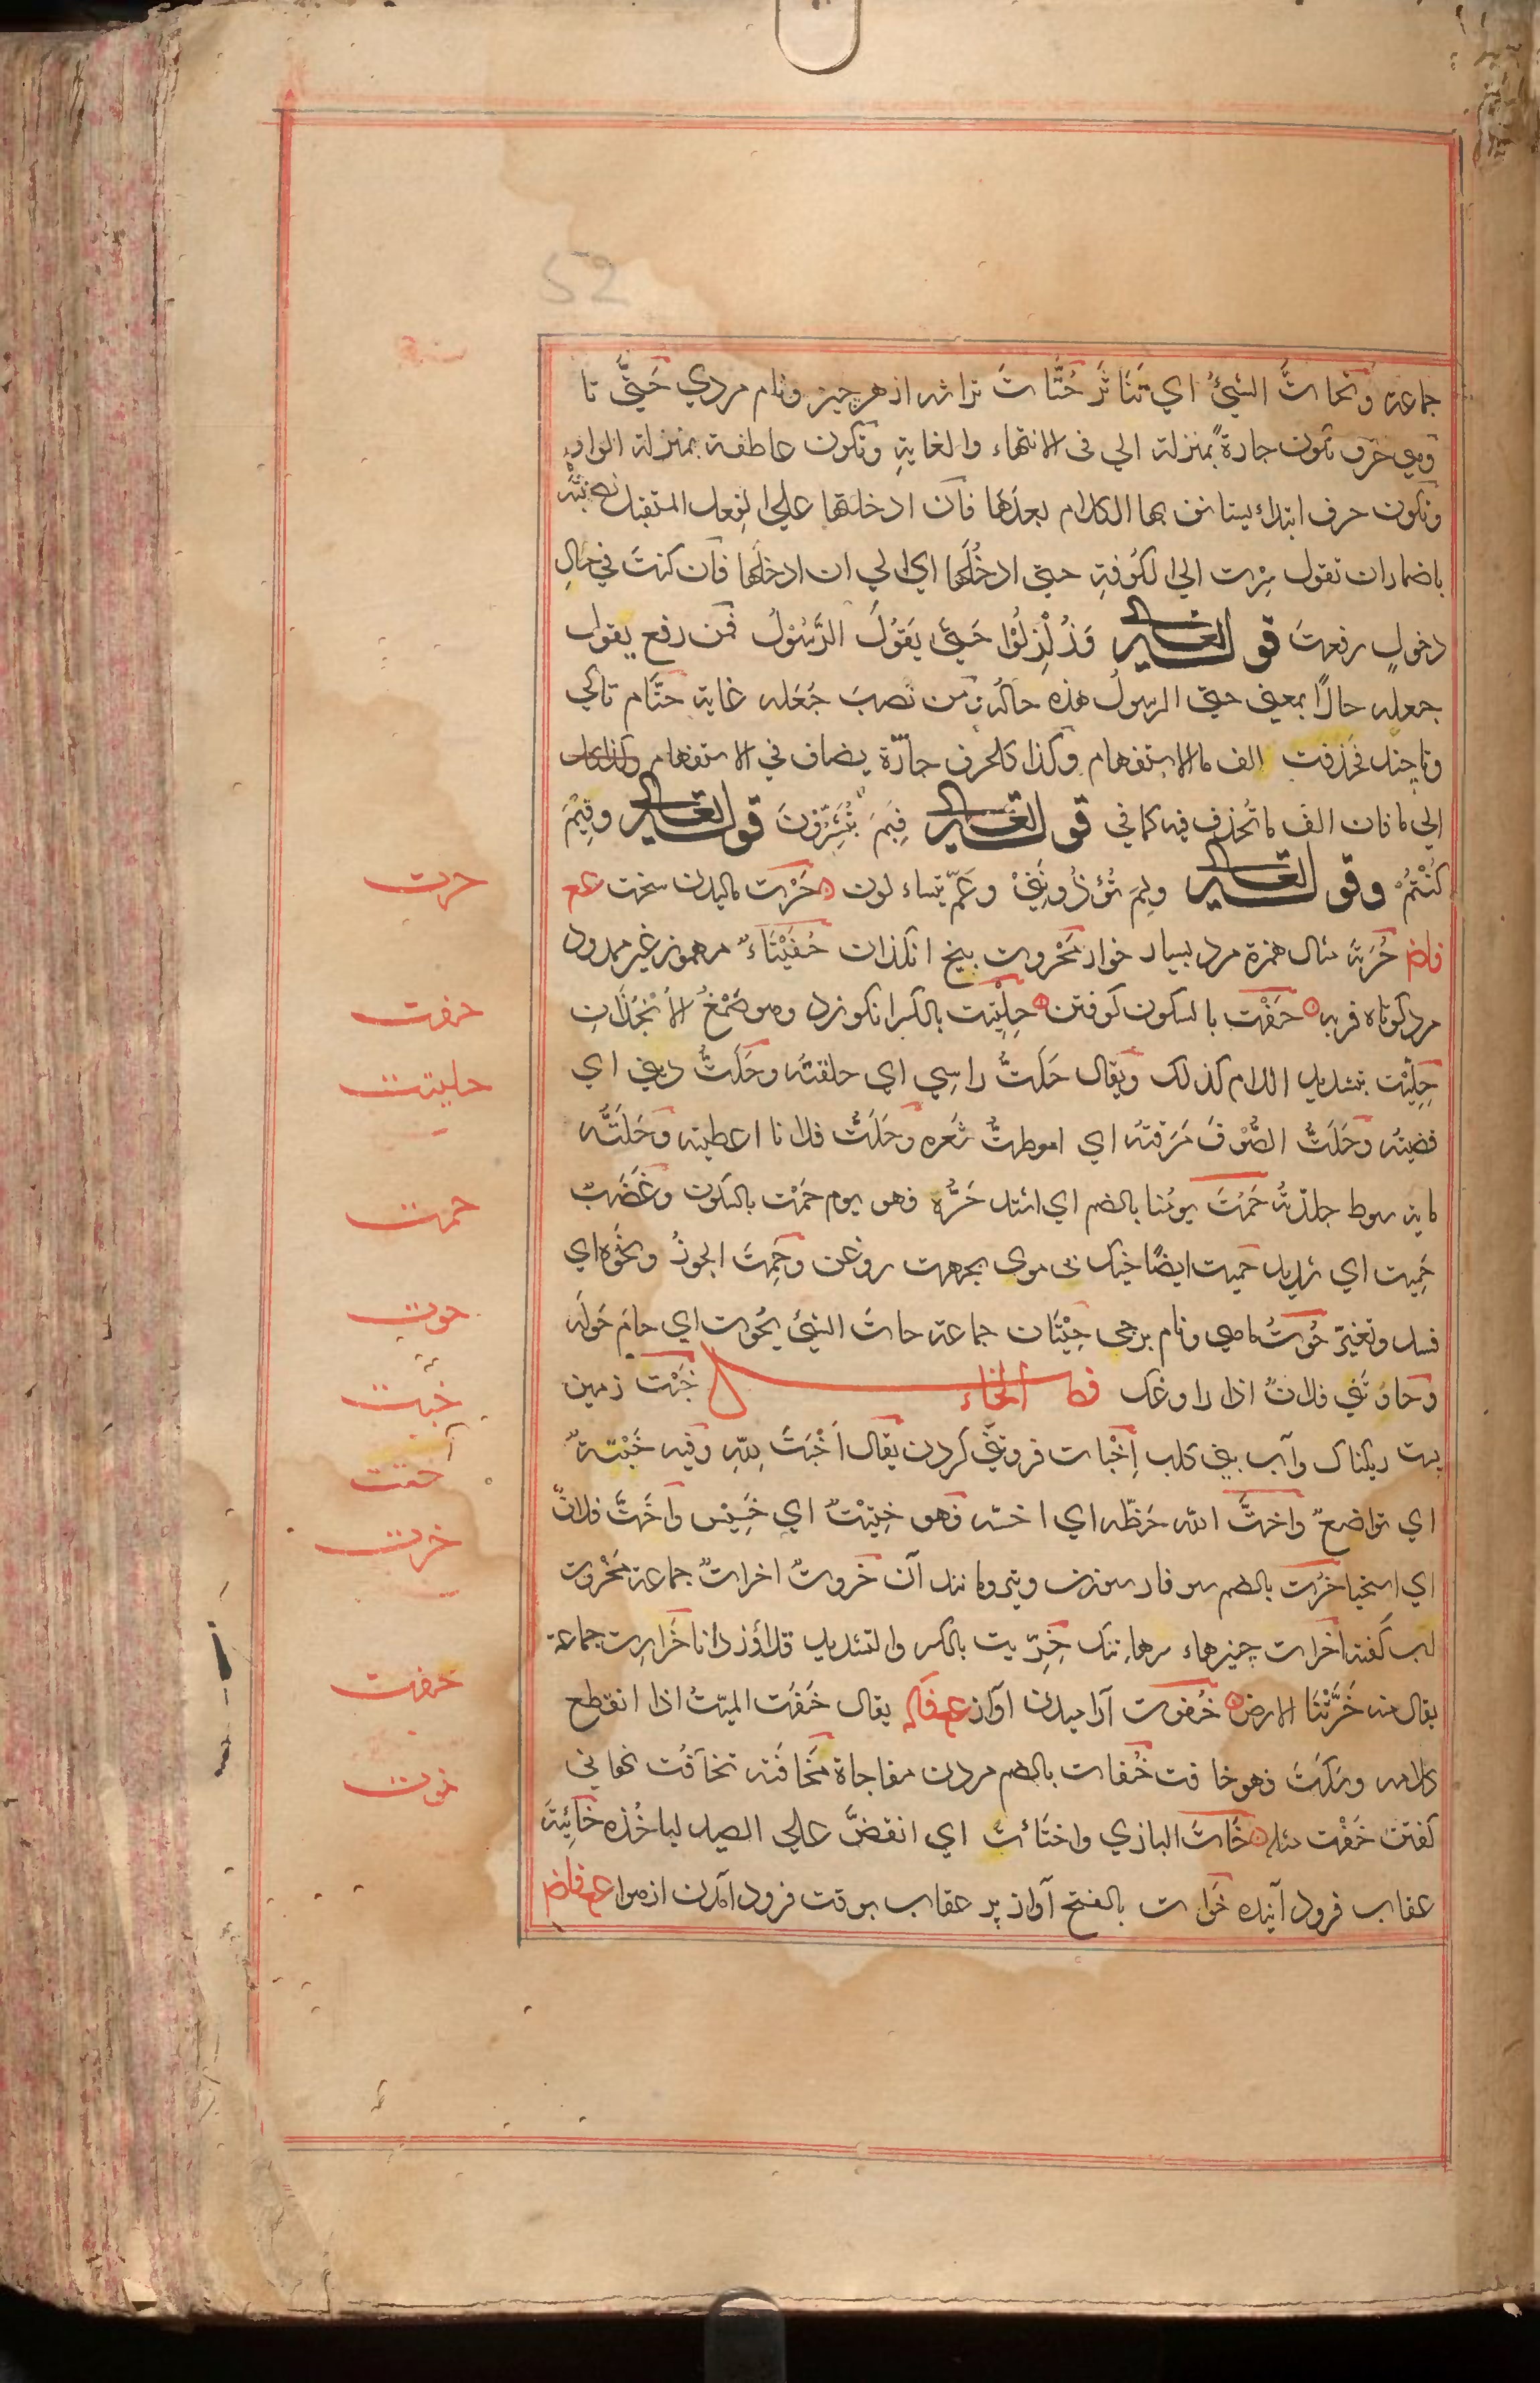 52
جماعة وَتَحَاتَّ الشيئُ اي تَنَاثَرَ حُتَاتَ تراشه از هر چيز ونام مردي حَتّٰى تا
وهي حرف تكون جارةً بمنزلة الي فى الانتهاء والغايةِ وتكون عاطفة بمنزلة الواو
وتكون حرف ابتداء يستانف بها الكلام بعدَها فان ادخلتها علي الفعل المستقبل نصبتَه
باضمار ان تقول سِرْت الي الكُوفةِ حتى ادخُلَها اي الي ان ادخلَها فان كنتَ في حالِ
دخولٍ رفعتَ قوله تعالى وَزُلْزِلُوْا حَتّٰى يَقُوْلَ الرَّسُوْلُ فمن رفع يقول
جعله حالًا بمعنى حتى الرسولُ هذه حالُه ومن نصبَ جُعَله غاية حتَّام تاكي
وتا چند فحُذفت الف ما الاستفهام وكذا كل حرف جارّة يضاف في الاستفهام
الي ما فان الف ما تُحذف فيه كما في قوله تعالى فبِمَ تُبَشِّرُونَ قوله تعالى وفِيْمَ
كُنْتُمْ وقوله تعالى ولِمَ تُؤذُونَنِيْ وعَمَّ يتساءلون حَرْت ماليدن سخت عـ
فاض حُرَتَة مثال همزة مرد بسيار خوار مَحْرُوت بيخ انگذان حَفَيْتَاءٌ مهموز غير ممدود
مرد كوتاه فربه حَفْت بالسكون كوفتن حِلْتِيت بالكسر انگوزد وهو صَمْغُ الاَنْجُذَانِ
حِلِّيْت بتشديد اللام كذلك ويقال حَلَتُّ راسِي اي حلقتُه وحَلَتُّ ديني اي
قضيتُه وحَلَتُّ الصُّوْفَ مَرَقتُه اي اموطتُّ شَعره وحَلَتُّ فلانا اعطيته وحَلَتُّه
ماية سوط جلدّتُه حَمُتَ يومُنا بالضم اي اشتد حَرُّه فهو يوم حَمْت بالسكون وغَضَبٌ
حَمِيت اي شديد حَمِيت ايضًا خيك بى موي بجهت روغن وحَمِتَ الجوزُ ونحوُه اي
فسد وتغيّرَ حُوْتُ ماهي ونام برجى حِيْتَان جماعة حاتَ الشيئُ يحُوت اي حام حَولَه
وحاوَتَنِي فلانٌ اذا راوغك فصل الخاء خَبْت زمين
پست ريگناك وآب بنى كلب اِخْبات فروتنى كردن يقال اَخْبَتَ لِلّٰهِ وفيه خَبْتَةٌ
اي تواضعٌ واختَّ اللّٰه حَظَّه اي اخسّه فهو خَتِيْتٌ اي خَسِيْس واَخَتَّ فلانٌ
اي استحيا خُرْت بالضم سوفار سوزن وتبر ومانند آن خُروتٌ اخراتٌ جماعة مَخْروت
لب كفته اخرات چيزهاء سرها تنك خِرِّيت بالكسر والتشديد قلاوز دانا خَرارِت جماعة
يقال منه خَرَتْنَا الارض خُفوت آراميدن آواز عـ فكه يقال خَفَت الميّتُ اذا انقطع
كلامه وسَكَتَ فهو خافت خُفات بالضم مردن مفاجاة مُخافَتة تخافُت نهانى
گفتن خَفْت مثله خَاتَ البازي واختَات اي انقضَّ علي الصيد لياخُذه خَائِتَة
عقاب فرود آينده خَوَات بالفتح آواز پر عقاب بوقت فرود آمدن از هوا عـ فاض
حرت
حفت
حلتيت
حمت
حوت
خبت
ختت
خرت
خفت
خوت